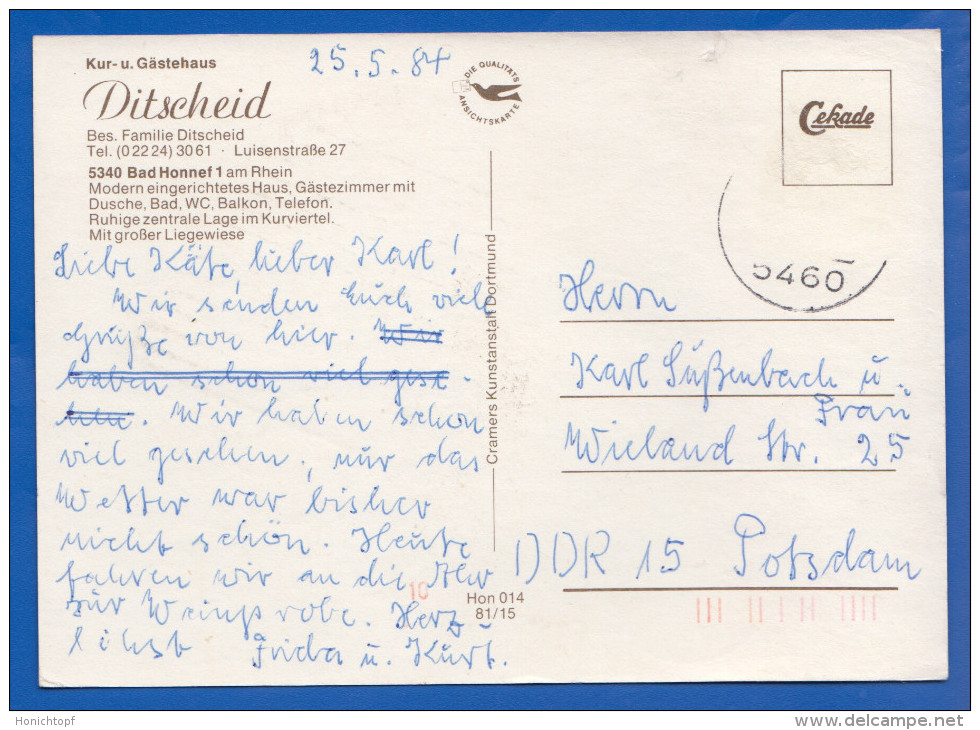 Kur- u. Gästehaus
Ditscheid
Bes. Familie Ditscheid
Tel. (0 22 24) 30 61 · Luisenstraße 27
5340 Bad Honnef 1 am Rhein
Modern eingerichtetes Haus, Gästezimmer mit
Dusche, Bad, WC, Balkon, Telefon.
Ruhige zentrale Lage im Kurviertel.
Mit großer Liegewiese
25.5.84
DIE QUALITÄTS
ANSICHTSKARTE
Cekade
5460
Liebe Käte, lieber Karl!
Wir senden Euch viele
Grüße von hier. Wir
haben schon viel gese-
hen. Wir haben schon
viel gesehen, nur das
Wetter war bisher
nicht schön. Heute
fahren wir an die Ahr
zur Weinprobe. Herz-
lichst Frieda u. Kurt.
Cramers Kunstanstalt Dortmund
10
Hon 014
81/15
Herrn
Karl Süßenbach u.
Frau
Wieland Str. 25
DDR 15 Potsdam
Honichtopf
www.delcampe.net